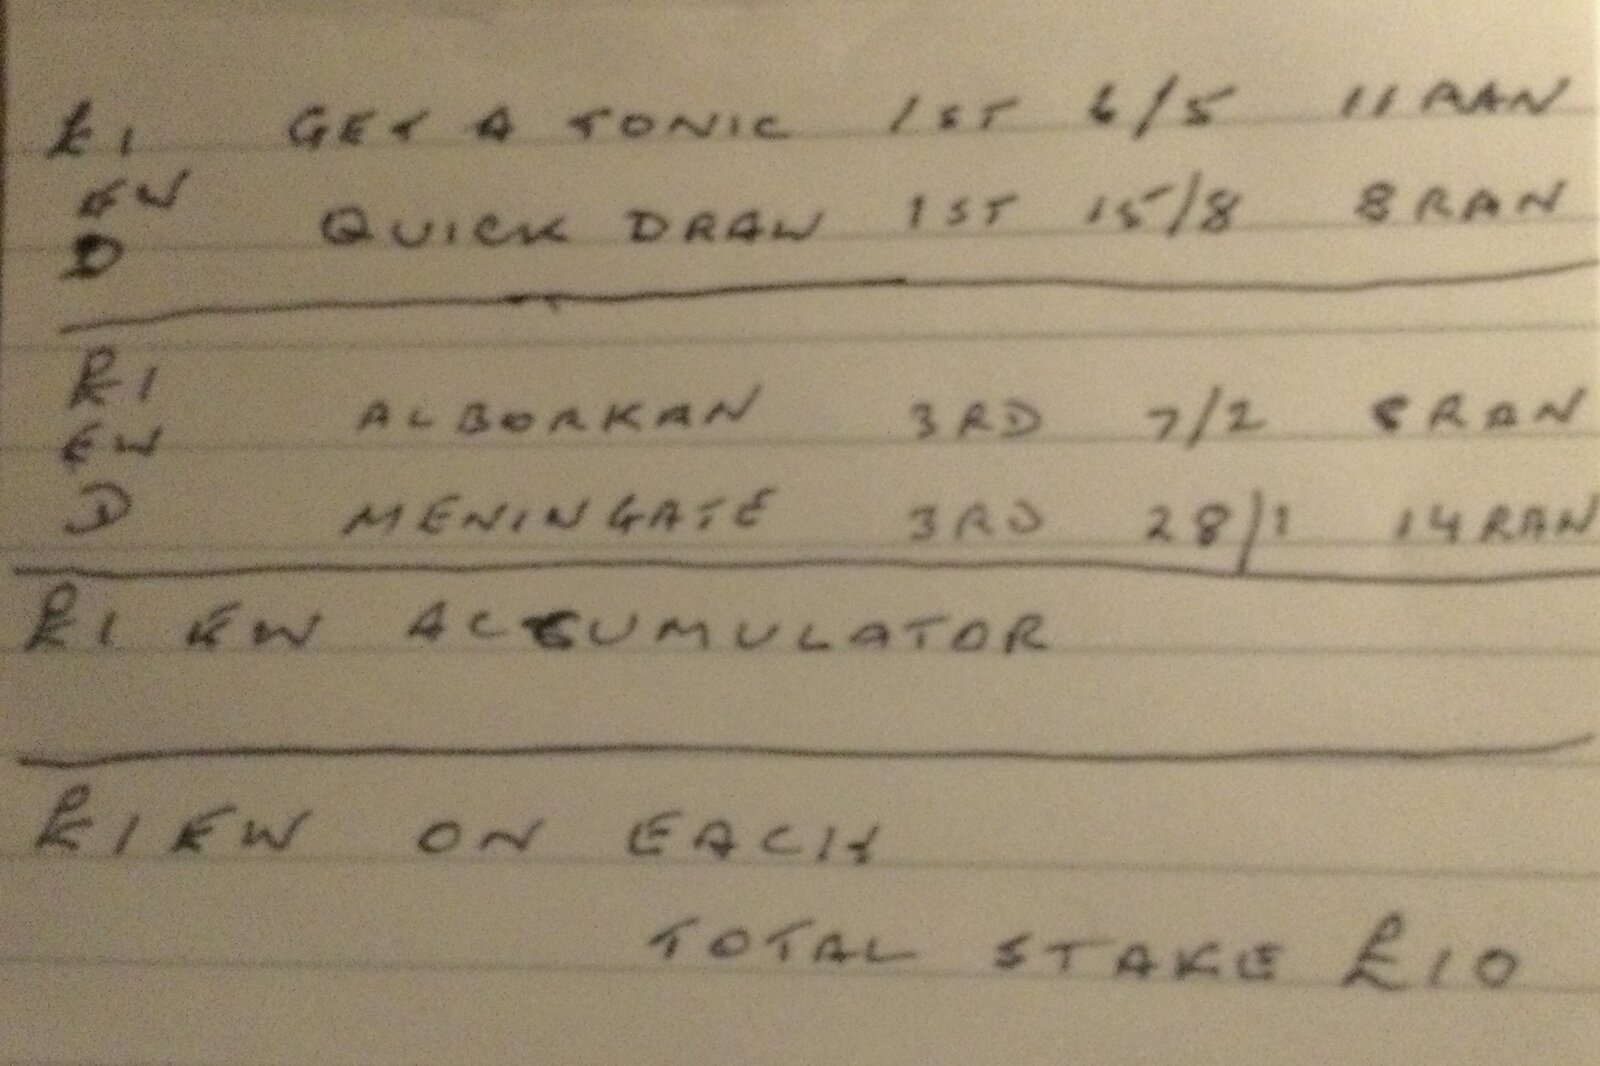 £1 GET A TONIC 1ST 6/5 11 RAN
EW
D QUICK DRAW 1ST 15/8 8 RAN
£1
EW ALBORKAN 3RD 7/2 8 RAN
D MENINGATE 3RD 28/1 14 RAN
£1 EW ACCUMULATOR
£1 EW ON EACH
TOTAL STAKE £10